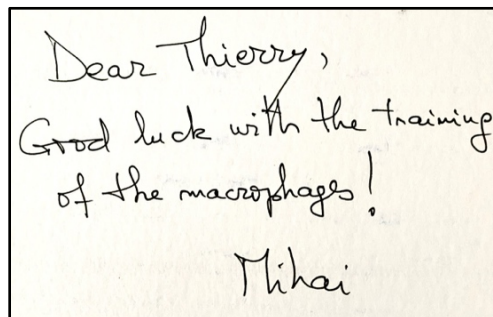 Dear Thierry,
Good luck with the training
of the macrophages!
Mihai